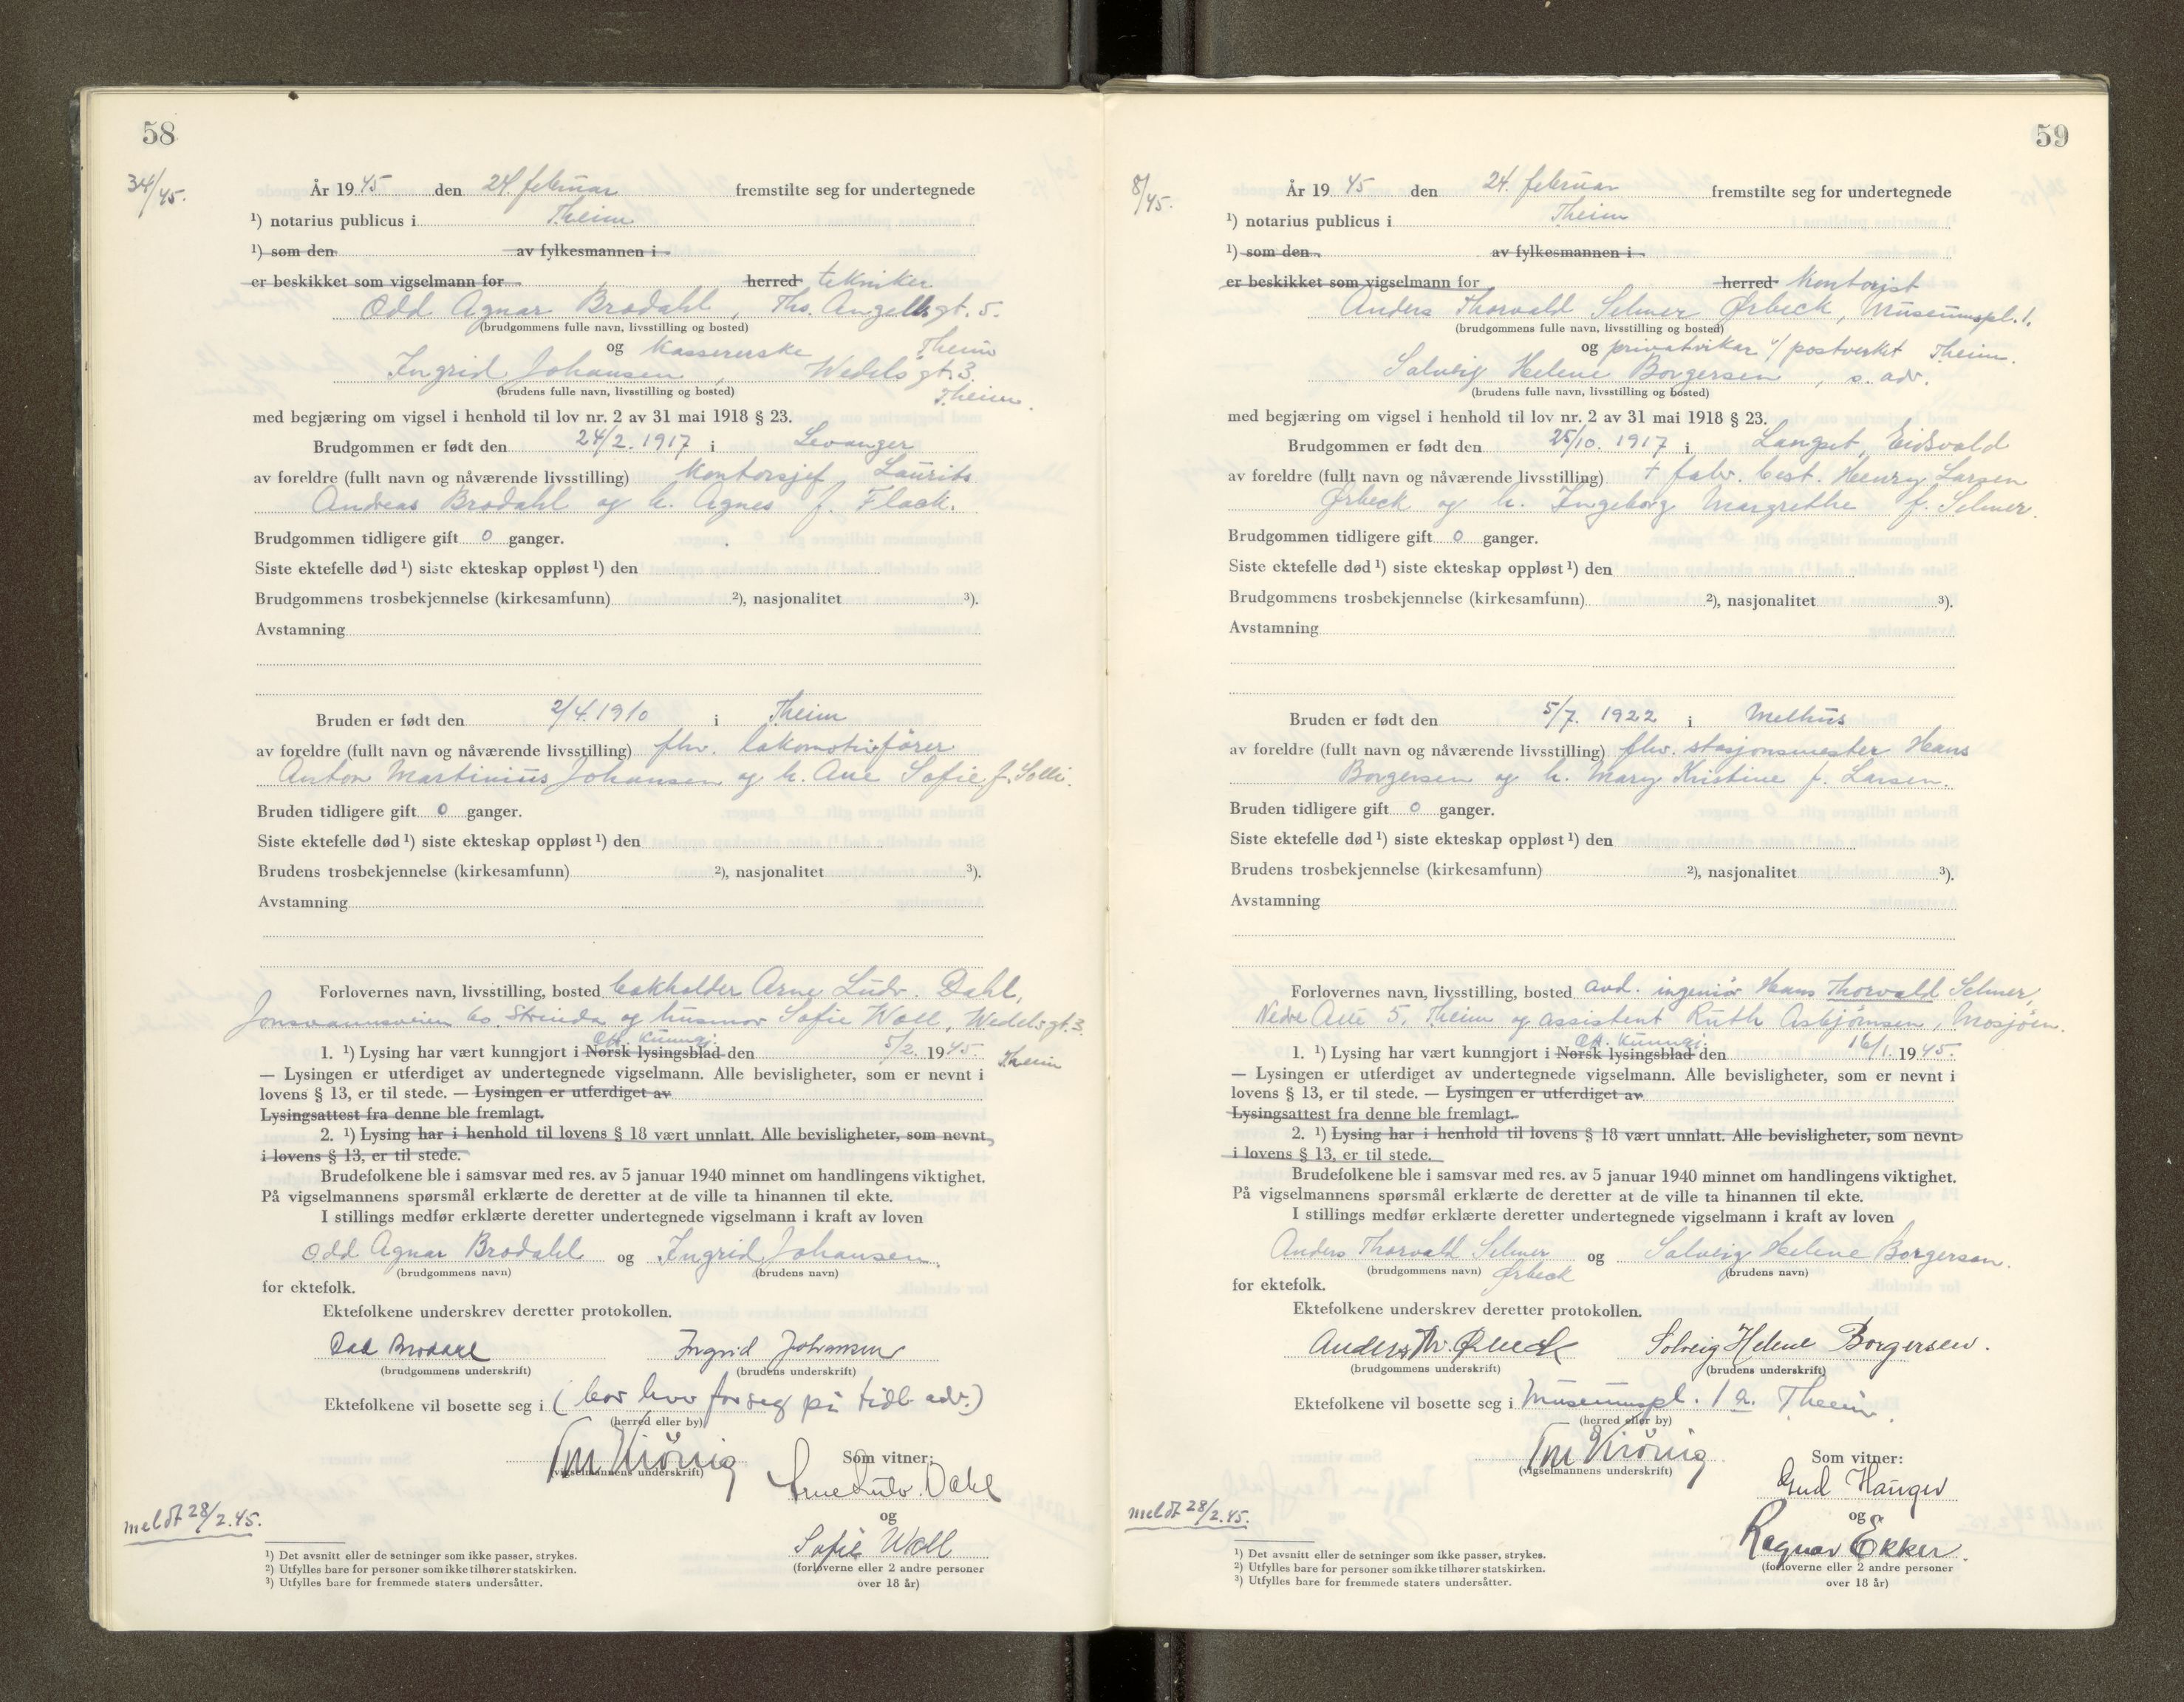 58
34/45.
År 1945 den 24. februar fremstilte seg for undertegnede
¹) notarius publicus i Theim
¹) som den av fylkesmannen i
er beskikket som vigselmann for herred tekniker
Odd Agnar Brodahl, Ths. Angellsgt. 5.
(brudgommens fulle navn, livsstilling og bosted)
og kassererske Theim
Ingrid Johansen, Wedelsgt. 3
(brudens fulle navn, livsstilling og bosted) Theim.
med begjæring om vigsel i henhold til lov nr. 2 av 31 mai 1918 § 23.
Brudgommen er født den 24/2. 1917 i Levanger
av foreldre (fullt navn og nåværende livsstilling) kontorsjef Laurits
Andreas Brodahl og h. Agnes f. Flack.
Brudgommen tidligere gift 0 ganger.
Siste ektefelle død ¹) siste ekteskap oppløst ¹) den
Brudgommens trosbekjennelse (kirkesamfunn) ²), nasjonalitet ³).
Avstamning
Bruden er født den 2/4. 1910 i Theim
av foreldre (fullt navn og nåværende livsstilling) fhv. lokomotivfører
Anton Martinius Johansen og h. Ane Sofie f. Solli.
Bruden tidligere gift 0 ganger.
Siste ektefelle død ¹) siste ekteskap oppløst ¹) den
Brudens trosbekjennelse (kirkesamfunn) ²), nasjonalitet ³).
Avstamning
Forlovernes navn, livsstilling, bosted bokholder Arne Ludv. Dahl,
Jonsvannsveien 60. Strinda og husmor Sofie Woll, Wedelsgt. 3.
Off. kunngj.
1. ¹) Lysing har vært kunngjort i Norsk lysingsblad den 5/2. 1945. Theim
— Lysingen er utferdiget av undertegnede vigselmann. Alle bevisligheter, som er nevnt i
lovens § 13, er til stede. — Lysingen er utferdiget av
Lysingsattest fra denne ble fremlagt.
2. ¹) Lysing har i henhold til lovens § 18 vært unnlatt. Alle bevisligheter, som nevnt
i lovens § 13, er til stede.
Brudefolkene ble i samsvar med res. av 5 januar 1940 minnet om handlingens viktighet.
På vigselmannens spørsmål erklærte de deretter at de ville ta hinannen til ekte.
I stillings medfør erklærte deretter undertegnede vigselmann i kraft av loven
Odd Agnar Brodahl og Ingrid Johansen.
(brudgommens navn) (brudens navn)
for ektefolk.
Ektefolkene underskrev deretter protokollen.
Odd Brodahl Ingrid Johansen
(brudgommens underskrift) (brudens underskrift)
Ektefolkene vil bosette seg i (bor hver for seg på tidl. adr.)
(herred eller by)
(vigselmannens underskrift) Som vitner:
Arne Ludv. Dahl
og
meldt 28/2.45.
Sofie Woll
(forloverne eller 2 andre personer
over 18 år)
¹) Det avsnitt eller de setninger som ikke passer, strykes.
²) Utfylles bare for personer som ikke tilhører statskirken.
³) Utfylles bare for fremmede staters undersåtter.
59
8/45.
År 1945 den 24. februar fremstilte seg for undertegnede
¹) notarius publicus i Theim
¹) som den av fylkesmannen i
er beskikket som vigselmann for herred kontorist
Anders Thorvald Selmer Ørbeck, Museumspl. 1.
(brudgommens fulle navn, livsstilling og bosted)
og privatvikar v/ postverket Theim.
Solveig Helene Borgersen, s. adr.
(brudens fulle navn, livsstilling og bosted)
med begjæring om vigsel i henhold til lov nr. 2 av 31 mai 1918 § 23.
Brudgommen er født den 25/10. 1917 i Langset, Eidsvold
av foreldre (fullt navn og nåværende livsstilling) + fabr. best. Henry Larsen
Ørbeck og h. Ingeborg Margrethe f. Selmer.
Brudgommen tidligere gift 0 ganger.
Siste ektefelle død ¹) siste ekteskap oppløst ¹) den
Brudgommens trosbekjennelse (kirkesamfunn) ²), nasjonalitet ³).
Avstamning
Bruden er født den 5/7. 1922 i Melhus
av foreldre (fullt navn og nåværende livsstilling) fhv. stasjonsmester Hans
Borgersen og h. Mary Kristine f. Larsen.
Bruden tidligere gift 0 ganger.
Siste ektefelle død ¹) siste ekteskap oppløst ¹) den
Brudens trosbekjennelse (kirkesamfunn) ²), nasjonalitet ³).
Avstamning
Forlovernes navn, livsstilling, bosted avd. ingeniør Hans Thorvald Selmer,
Nedre Alle 5, Theim og assistent Ruth Asbjørnsen, Mosjøen.
Off. kunngj.
1. ¹) Lysing har vært kunngjort i Norsk lysingsblad den 16/1. 1945.
— Lysingen er utferdiget av undertegnede vigselmann. Alle bevisligheter, som er nevnt i
lovens § 13, er til stede. — Lysingen er utferdiget av
Lysingsattest fra denne ble fremlagt.
2. ¹) Lysing har i henhold til lovens § 18 vært unnlatt. Alle bevisligheter, som nevnt
i lovens § 13, er til stede.
Brudefolkene ble i samsvar med res. av 5 januar 1940 minnet om handlingens viktighet.
På vigselmannens spørsmål erklærte de deretter at de ville ta hinannen til ekte.
I stillings medfør erklærte deretter undertegnede vigselmann i kraft av loven
Anders Thorvald Selmer og Solveig Helene Borgersen.
(brudgommens navn) Ørbeck (brudens navn)
for ektefolk.
Ektefolkene underskrev deretter protokollen.
Anders Th. Ørbeck Solveig Helene Borgersen.
(brudgommens underskrift) (brudens underskrift)
Ektefolkene vil bosette seg i Museumspl. 1 a. Theim.
(herred eller by)
(vigselmannens underskrift) Som vitner:
Hauger
og
meldt 28/2.45.
Ragnar Ekker.
(forloverne eller 2 andre personer
over 18 år)
¹) Det avsnitt eller de setninger som ikke passer, strykes.
²) Utfylles bare for personer som ikke tilhører statskirken.
³) Utfylles bare for fremmede staters undersåtter.